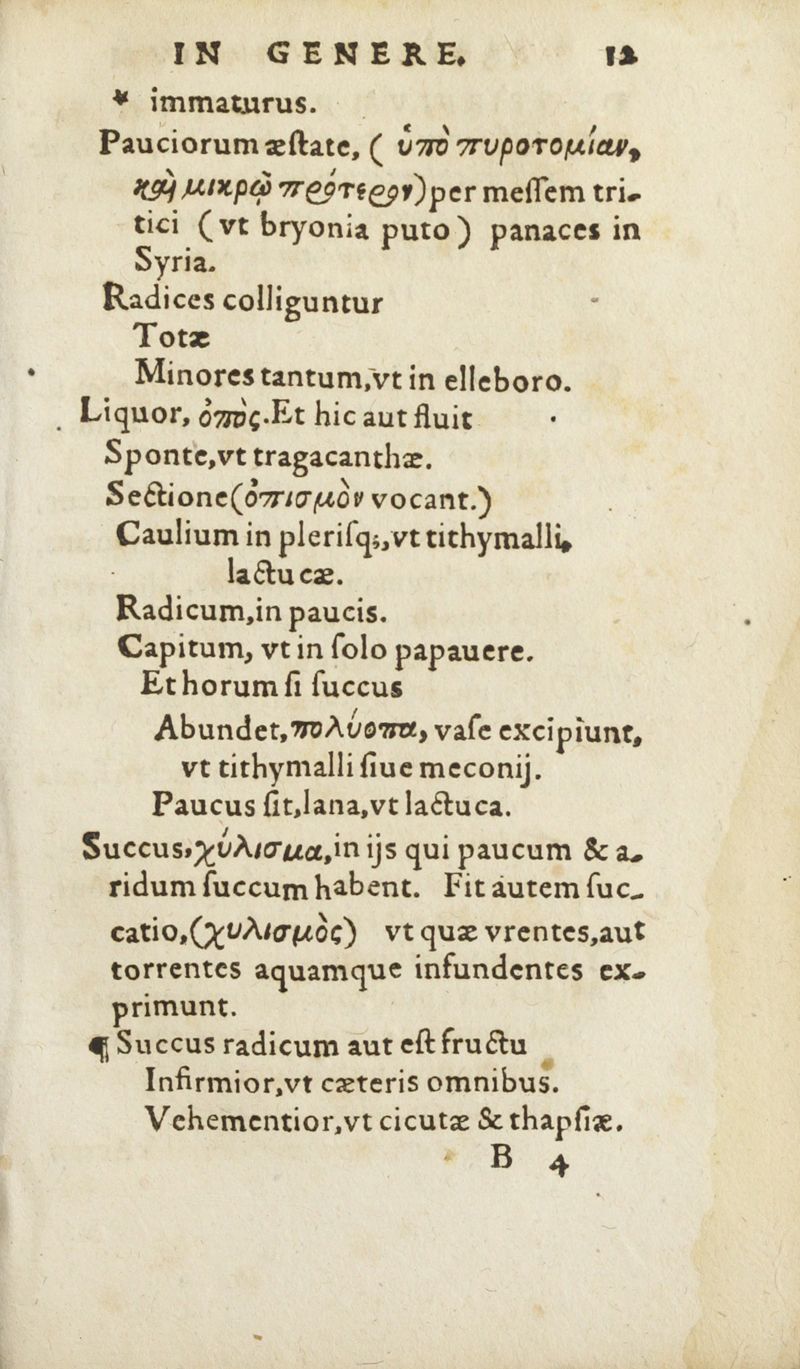 IN GENERE. 12
* immaturus.
Pauciorum æſtate, ( ὑπὸ πυροτομίαν,
καὶ μικρῷ πρότερον)per meſſem tri-
tici (vt bryonia puto) panaces in
Syria.
Radices colliguntur
Totæ
Minores tantum,vt in elleboro.
Liquor, ὀπὸς.Et hic aut fluit
Sponte,vt tragacanthæ.
Sectione(ὀπισμὸν vocant.)
Caulium in pleriſq;,vt tithymalli,
lactucæ.
Radicum,in paucis.
Capitum, vt in ſolo papauere.
Et horum ſi ſuccus
Abundet,πολύοπα, vaſe excipiunt,
vt tithymalli ſiue meconij.
Paucus ſit,lana,vt lactuca.
Succus,χύλισμα,in ijs qui paucum & a-
ridum ſuccum habent. Fit autem ſuc-
catio,(χυλισμὸς) vt quæ vrentes,aut
torrentes aquamque infundentes ex-
primunt.
¶ Succus radicum aut eſt fructu
Infirmior,vt cæteris omnibus.
Vehementior,vt cicutæ & thapſiæ.
B 4